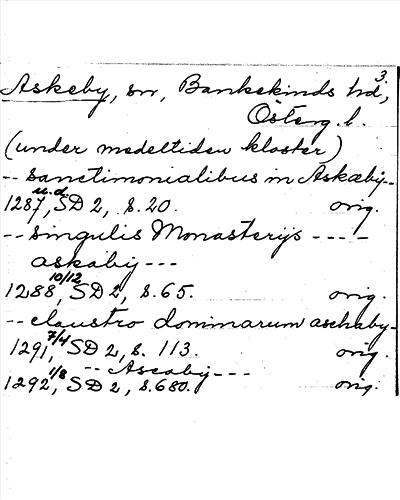 3.
Askeby, sn, Bankekinds hd,
Österg. l.
(under medeltiden kloster)
-- sanctimonialibus in Askæby--
1287, u.d. SD 2, s. 20. orig.
-- singulis Monasterijs ----
askaby ---
1288, 10/12 SD 2, s. 65. orig.
-- claustro dominarum aschaby-
1291, 7/4 SD 2, s. 113. orig.
-- Ascaby ---
1292, 1/8 SD 2, s. 680. orig.